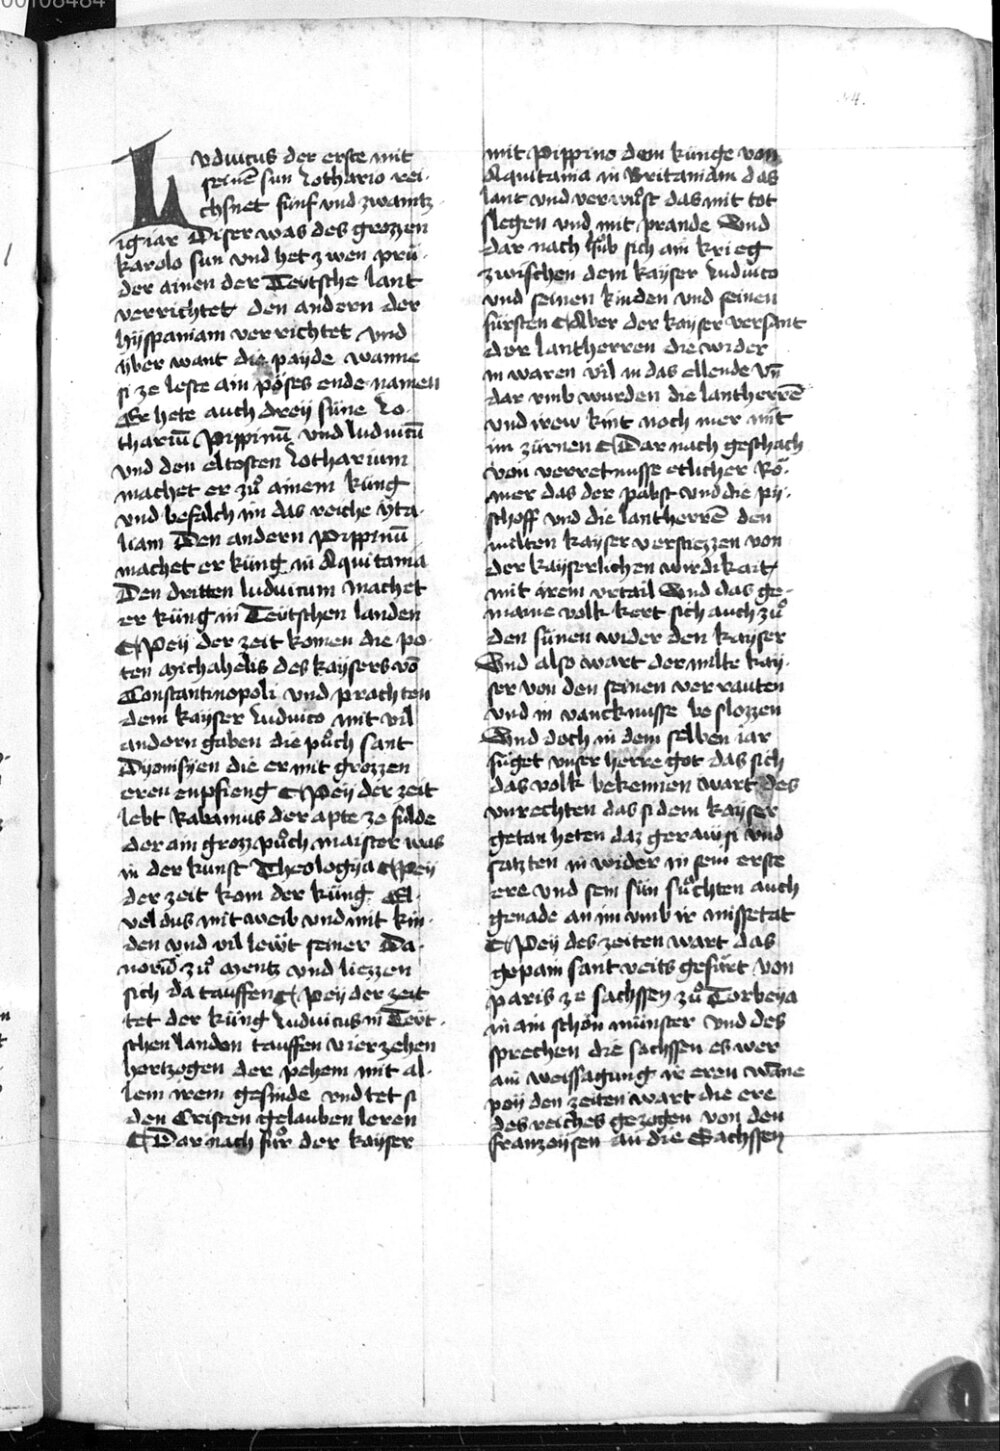 Ludwicus der erste mit
seinē sun Lothario rei⸗
chsnet fünf vnd zwaintz⸗
ig iar Diser was des grozzen
karolo sun vnd het zwen prü⸗
der ainen der Teütsche lant
verrichtet den andern der
hyspaniam verrichtet vnd
über want die payde wanne
si ze leste ain pöses ende namen
Er hete auch dreÿ süne Lo⸗
thariū Pippinū vnd ludwicū
vnd den eltosten Lotharium
machet er zuͦ ainem küng
vnd befalch im das reiche yta⸗
liam Den andern Pippinū
machet er küng in Aquitania
Den dritten ludwicum machet
er küng in Teütschen landen
¶ Peÿ der zeit komen die po⸗
ten Michahelis des kaysers vō
Constantinopoli vnd prachten
dem kayser Ludwico mit vil
andern gaben die puͤch sant
Dyonisyen die er mit grozzen
eren enpfieng ¶ Peÿ der zeit
lebt Rabanus der apte ze fulde
der ain grozz puͦch maister was
in der kunst Theologya ¶ Peÿ
der zeit kom der küng El⸗
veldus mit weib vnd mit kin⸗
den vnd vil leẅt seiner Da⸗
norū zuͦ Mentz vnd liezzen
sich da tauffen ¶ Peÿ der zeit
tet der küng Ludwicus in Teüt⸗
schen landen tauffen vierzehen
hertzogen der pehem mit al⸗
lem irem gesinde vnd tet si
den Cristen gelauben leren
¶ Dar nach fuͦr der kayser
mit Pippino dem künge von
Aquitania in Britaniam das
lant vnd verwuͤst das mit tot
slegen vnd mit prande Vnd
dar nach huͦb sich ain krieg
zwischen dem kayser Ludwico
vnd seinen kinden vnd seinen
fürsten ¶ Aber der kayser versant
der lantherren die wider
in waren vil in das ellende vn̄
dar vmb wurden die lantherrē
vnd irew kint noch mer mit
im zürnen ¶ Dar nach geschach
von verretnusse etlicher Rö⸗
mer das der pabst vnd die py⸗
schoff vnd die lantherrē den
milten kayser verstiezzen von
der kayserlichen wirdikait
mit irem vrtail Vnd das ge⸗
maine volk kert sich auch zuͦ
den sünen wider den kayser
Vnd also wart der milte kay⸗
ser von den seinen verrauten
vnd in vancknusse beslozzen
Vnd doch in dem selben iar
füget vnser herre got das sich
das volk bekennen wart des
vnrechten das si dem kayser
getan heten daz geraw si vnd
satzten in wider in sein erste
ere vnd sein sün suͦchten auch
genade an im vmb ir missetat
¶ Peÿ des zeiten wart das
gepain sant veits gefürt von
paris ze sachssen zuͦ Corbeya
in ain schön münster vnd des
sprechen die sachssen es wer
ain weissagung ir eren wāne
peÿ den zeiten wart die ere
des reiches gezogen von den
franzoysen an die Sachssen